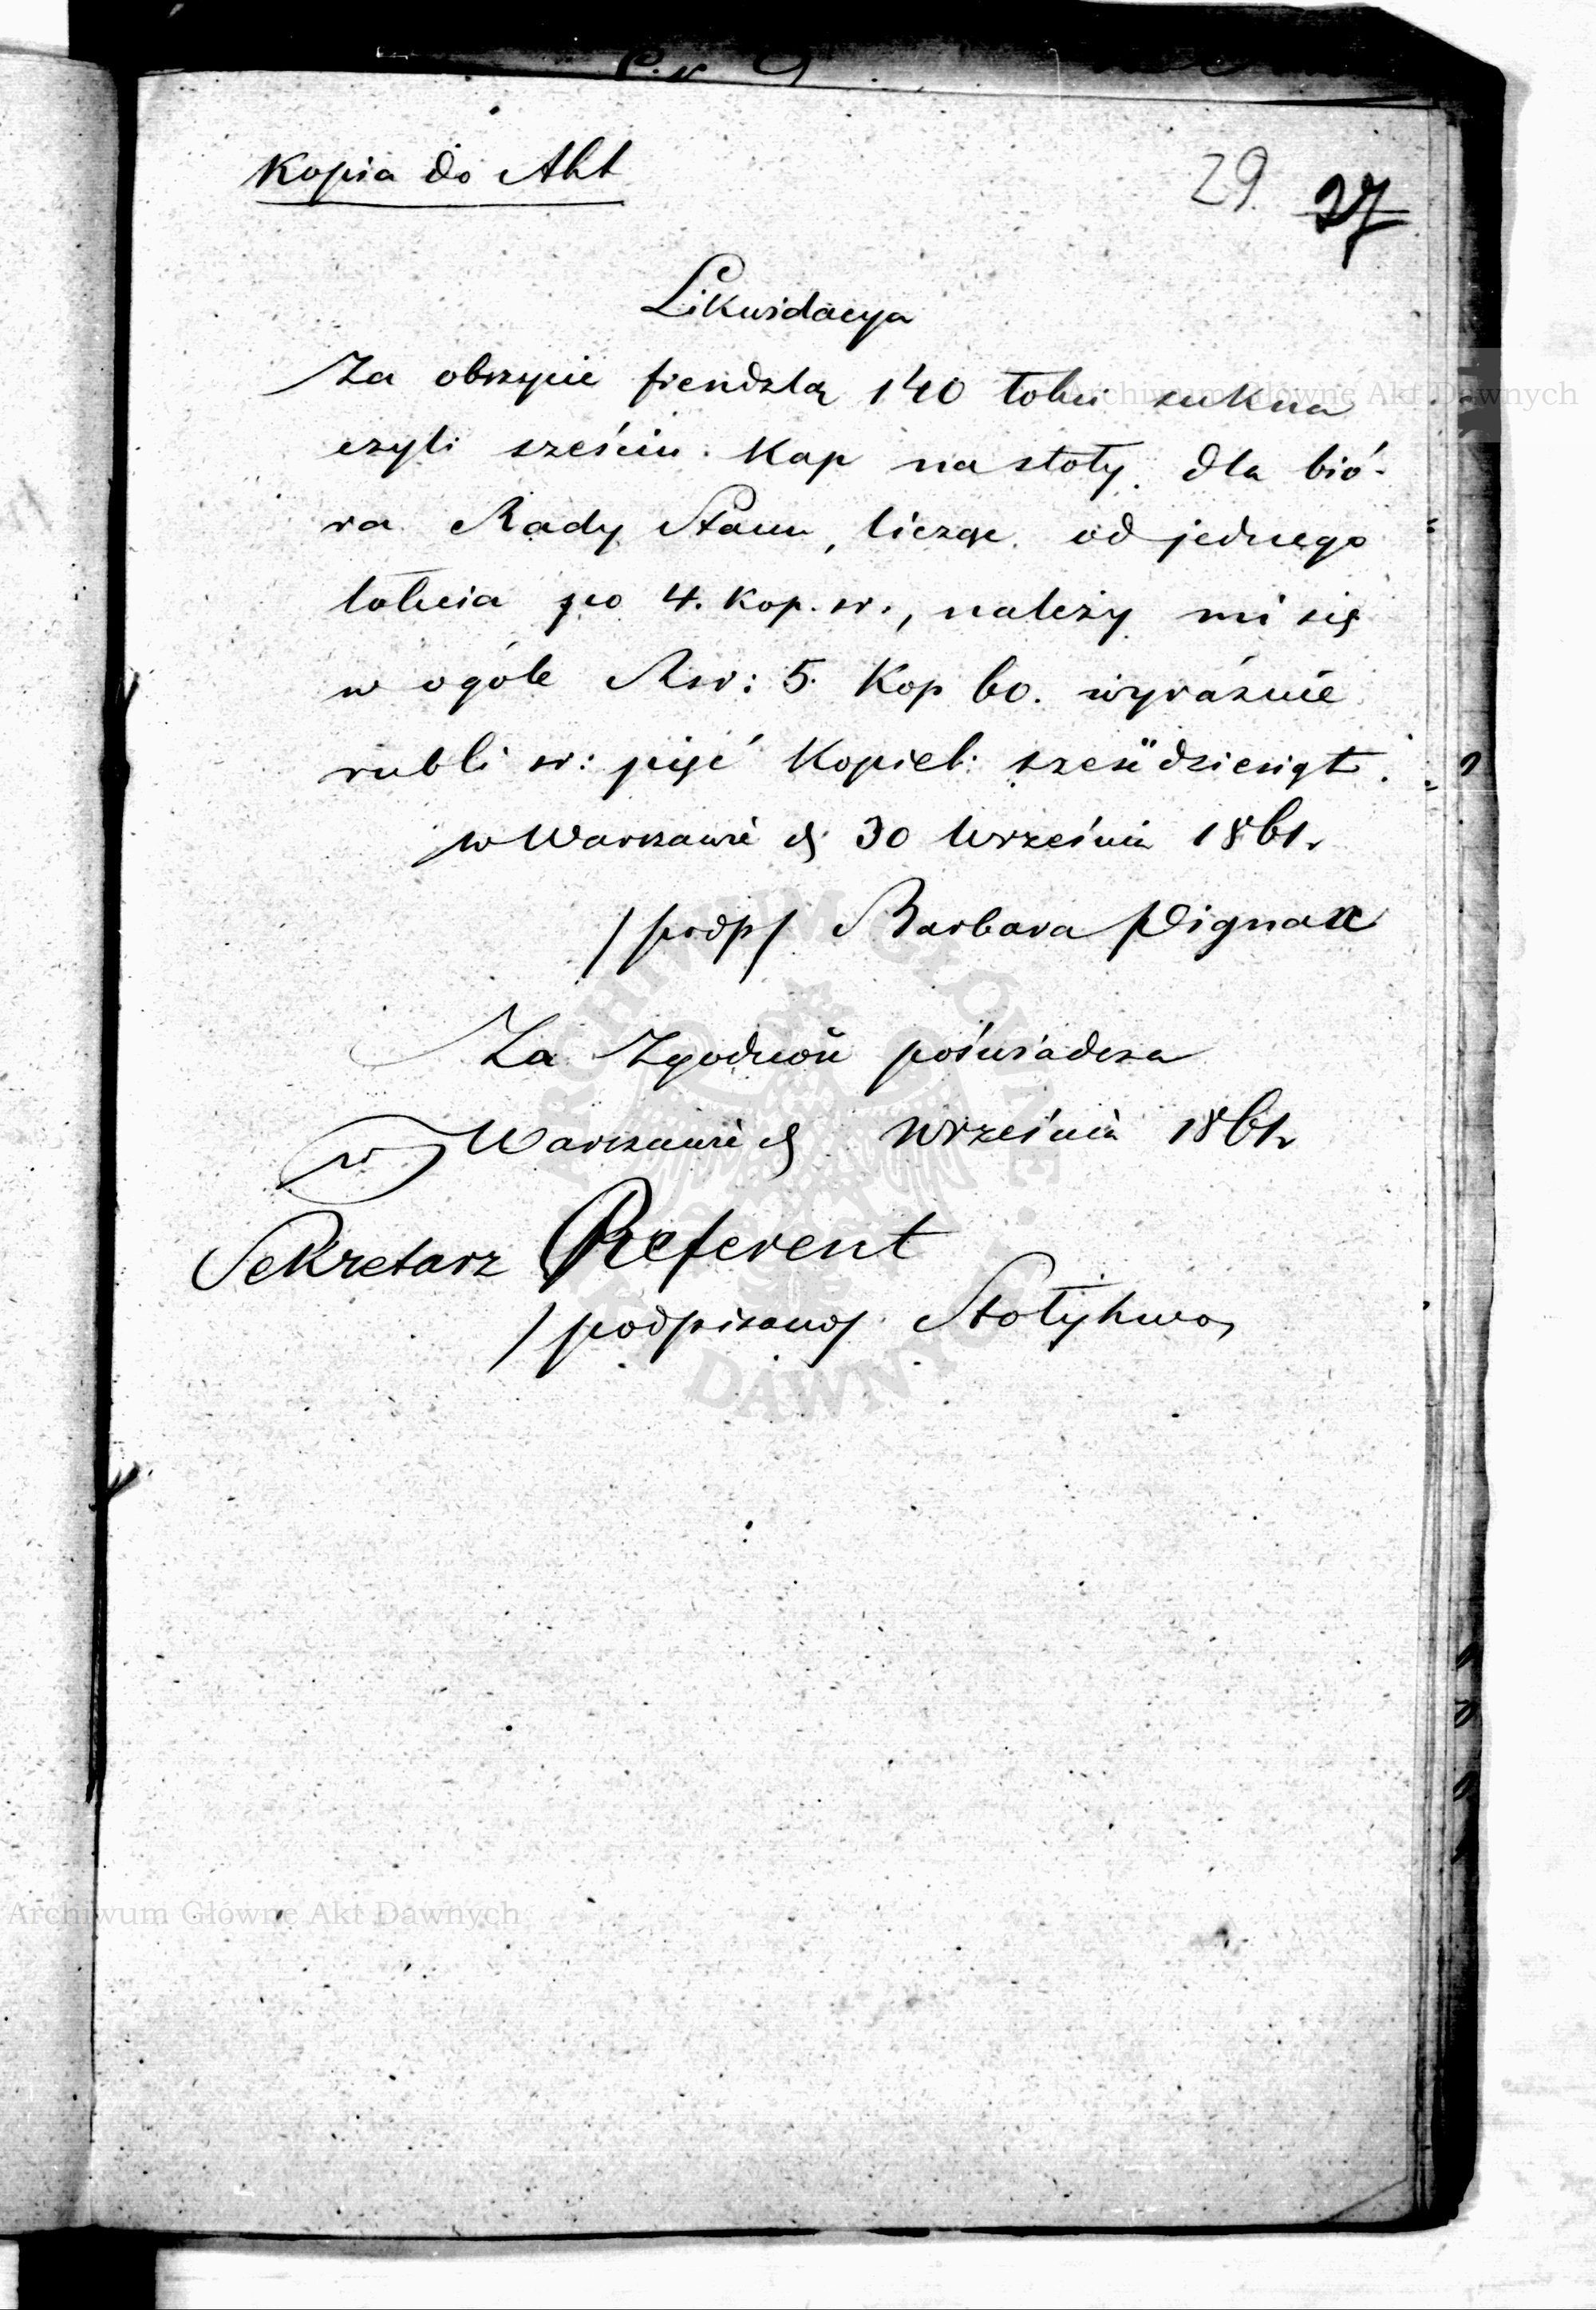 Kopia do Akt
29. 27
Likwidacya
Za obszycie frendzlą 140 łokci sukna
czyli sześciu kap na stoły dla bió-
ra Rady Stanu, licząc od jednego
łokcia po 4. kop. sr., należy mi się
w ogóle Rsr: 5. Kop 60. wyraźnie
rubli sr: pięć kopiek: sześćdziesiąt.
w Warszawie d. 30 Września 1861 r
/podp/ Barbara Pignan
Za Zgodność poświadcza
w Warszawie d Września 1861 r
Sekretarz Referent
/podpisano/ Stołyhwo
Archiwum Główne Akt Dawnych
ARCHIWUM GŁÓWNE AKT DAWNYCH
Archiwum Główne Akt Dawnych